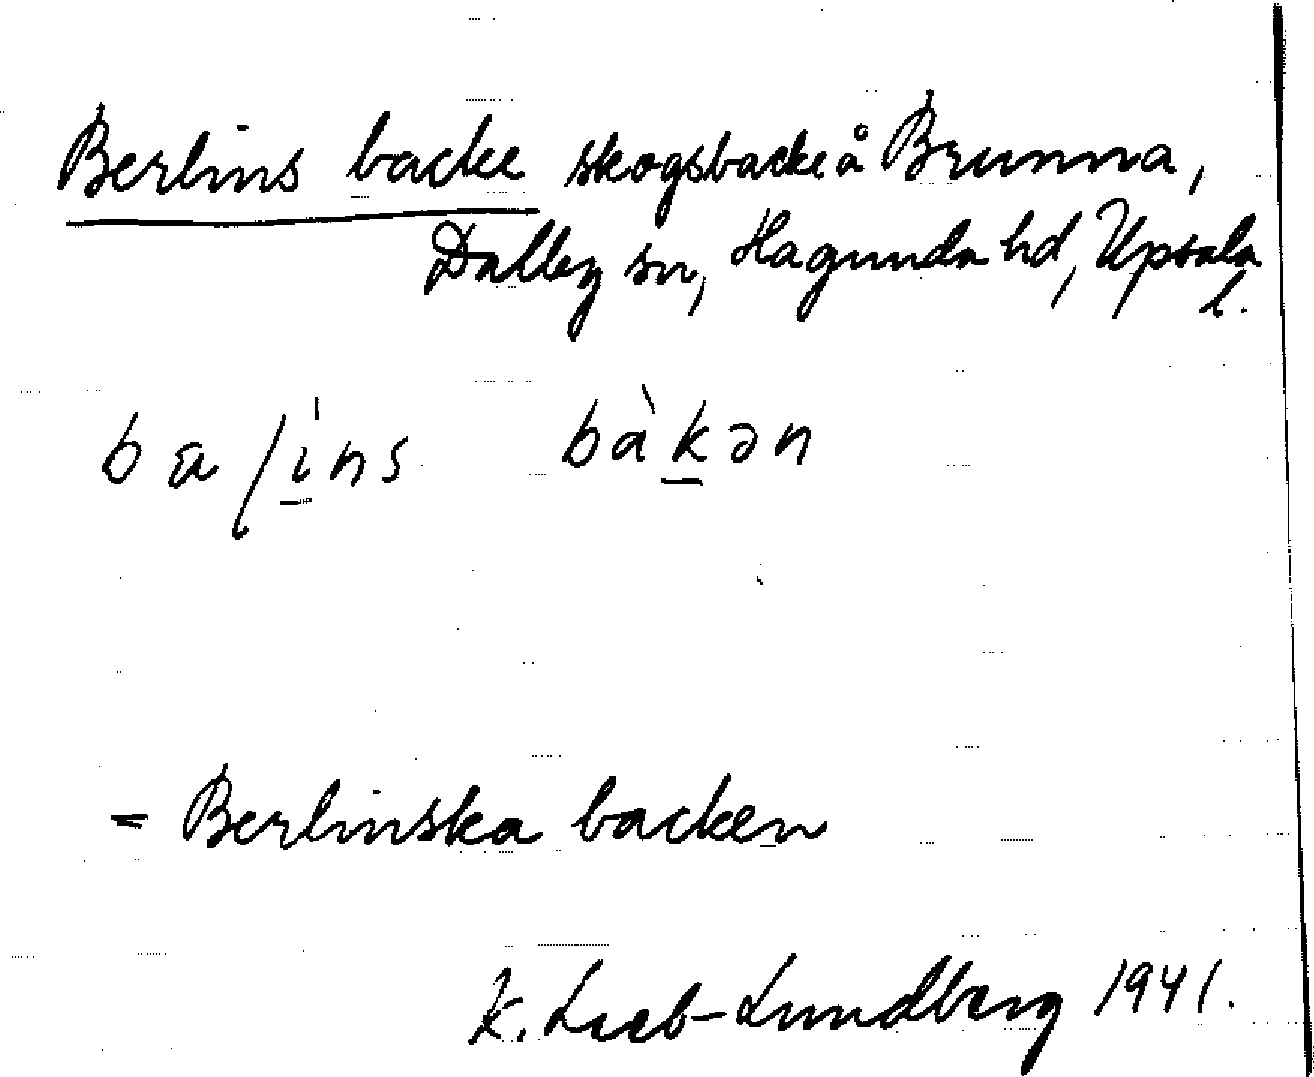 Berlins backe skogsbacke å Brunna,
Dalby sn, Hagunda hd, Upsala
l.
bàkən
= Berlinska backen
K. Leeb-Lundberg 1941.